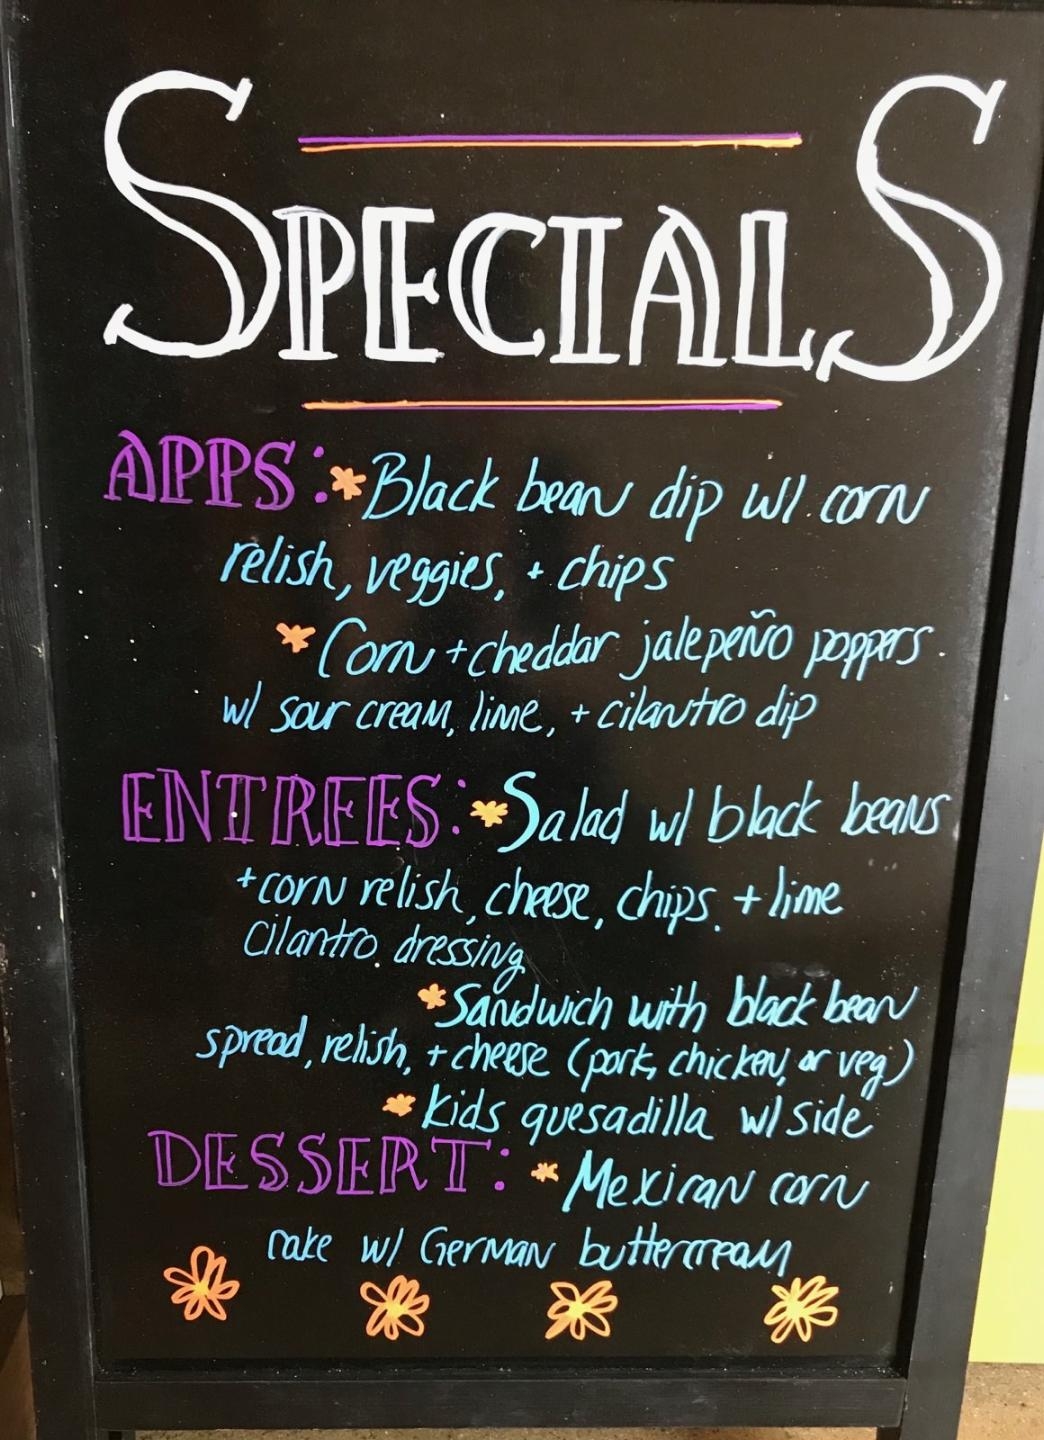 SPECIALS
APPS: *Black bean dip w/ corn
relish, veggies, + chips
*Corn + cheddar jalepeño poppers
w/ sour cream, lime, + cilantro dip
ENTREES: *Salad w/ black beans
+ corn relish, cheese, chips, + lime
cilantro dressing
*Sandwich with black bean
spread, relish, + cheese (pork, chicken, or veg)
*kids quesadilla w/ side
DESSERT: *Mexican corn
cake w/ German buttercream